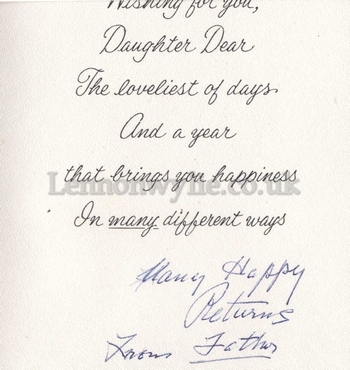 Wishing for you,
Daughter Dear
The loveliest of days
And a year
that brings you happiness
Lennonwylie.co.uk
In many different ways
Many Happy
Returns
From Father